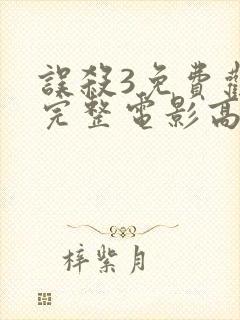 誤殺3免費觀
完整電影高
梓紫月